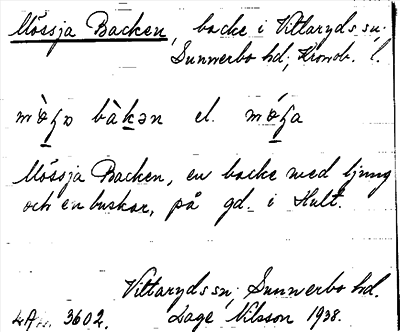 Mössja Backen, backe i Vittaryds sn;
Sunnerbo hd; Kronob. l.
bàkən el.
Mössja Backen, en backe med ljung
och enbuskar, på gd. i Hult.
Vittaryds sn; Sunnerbo hd.
3602. Lage Nilsson 1938.